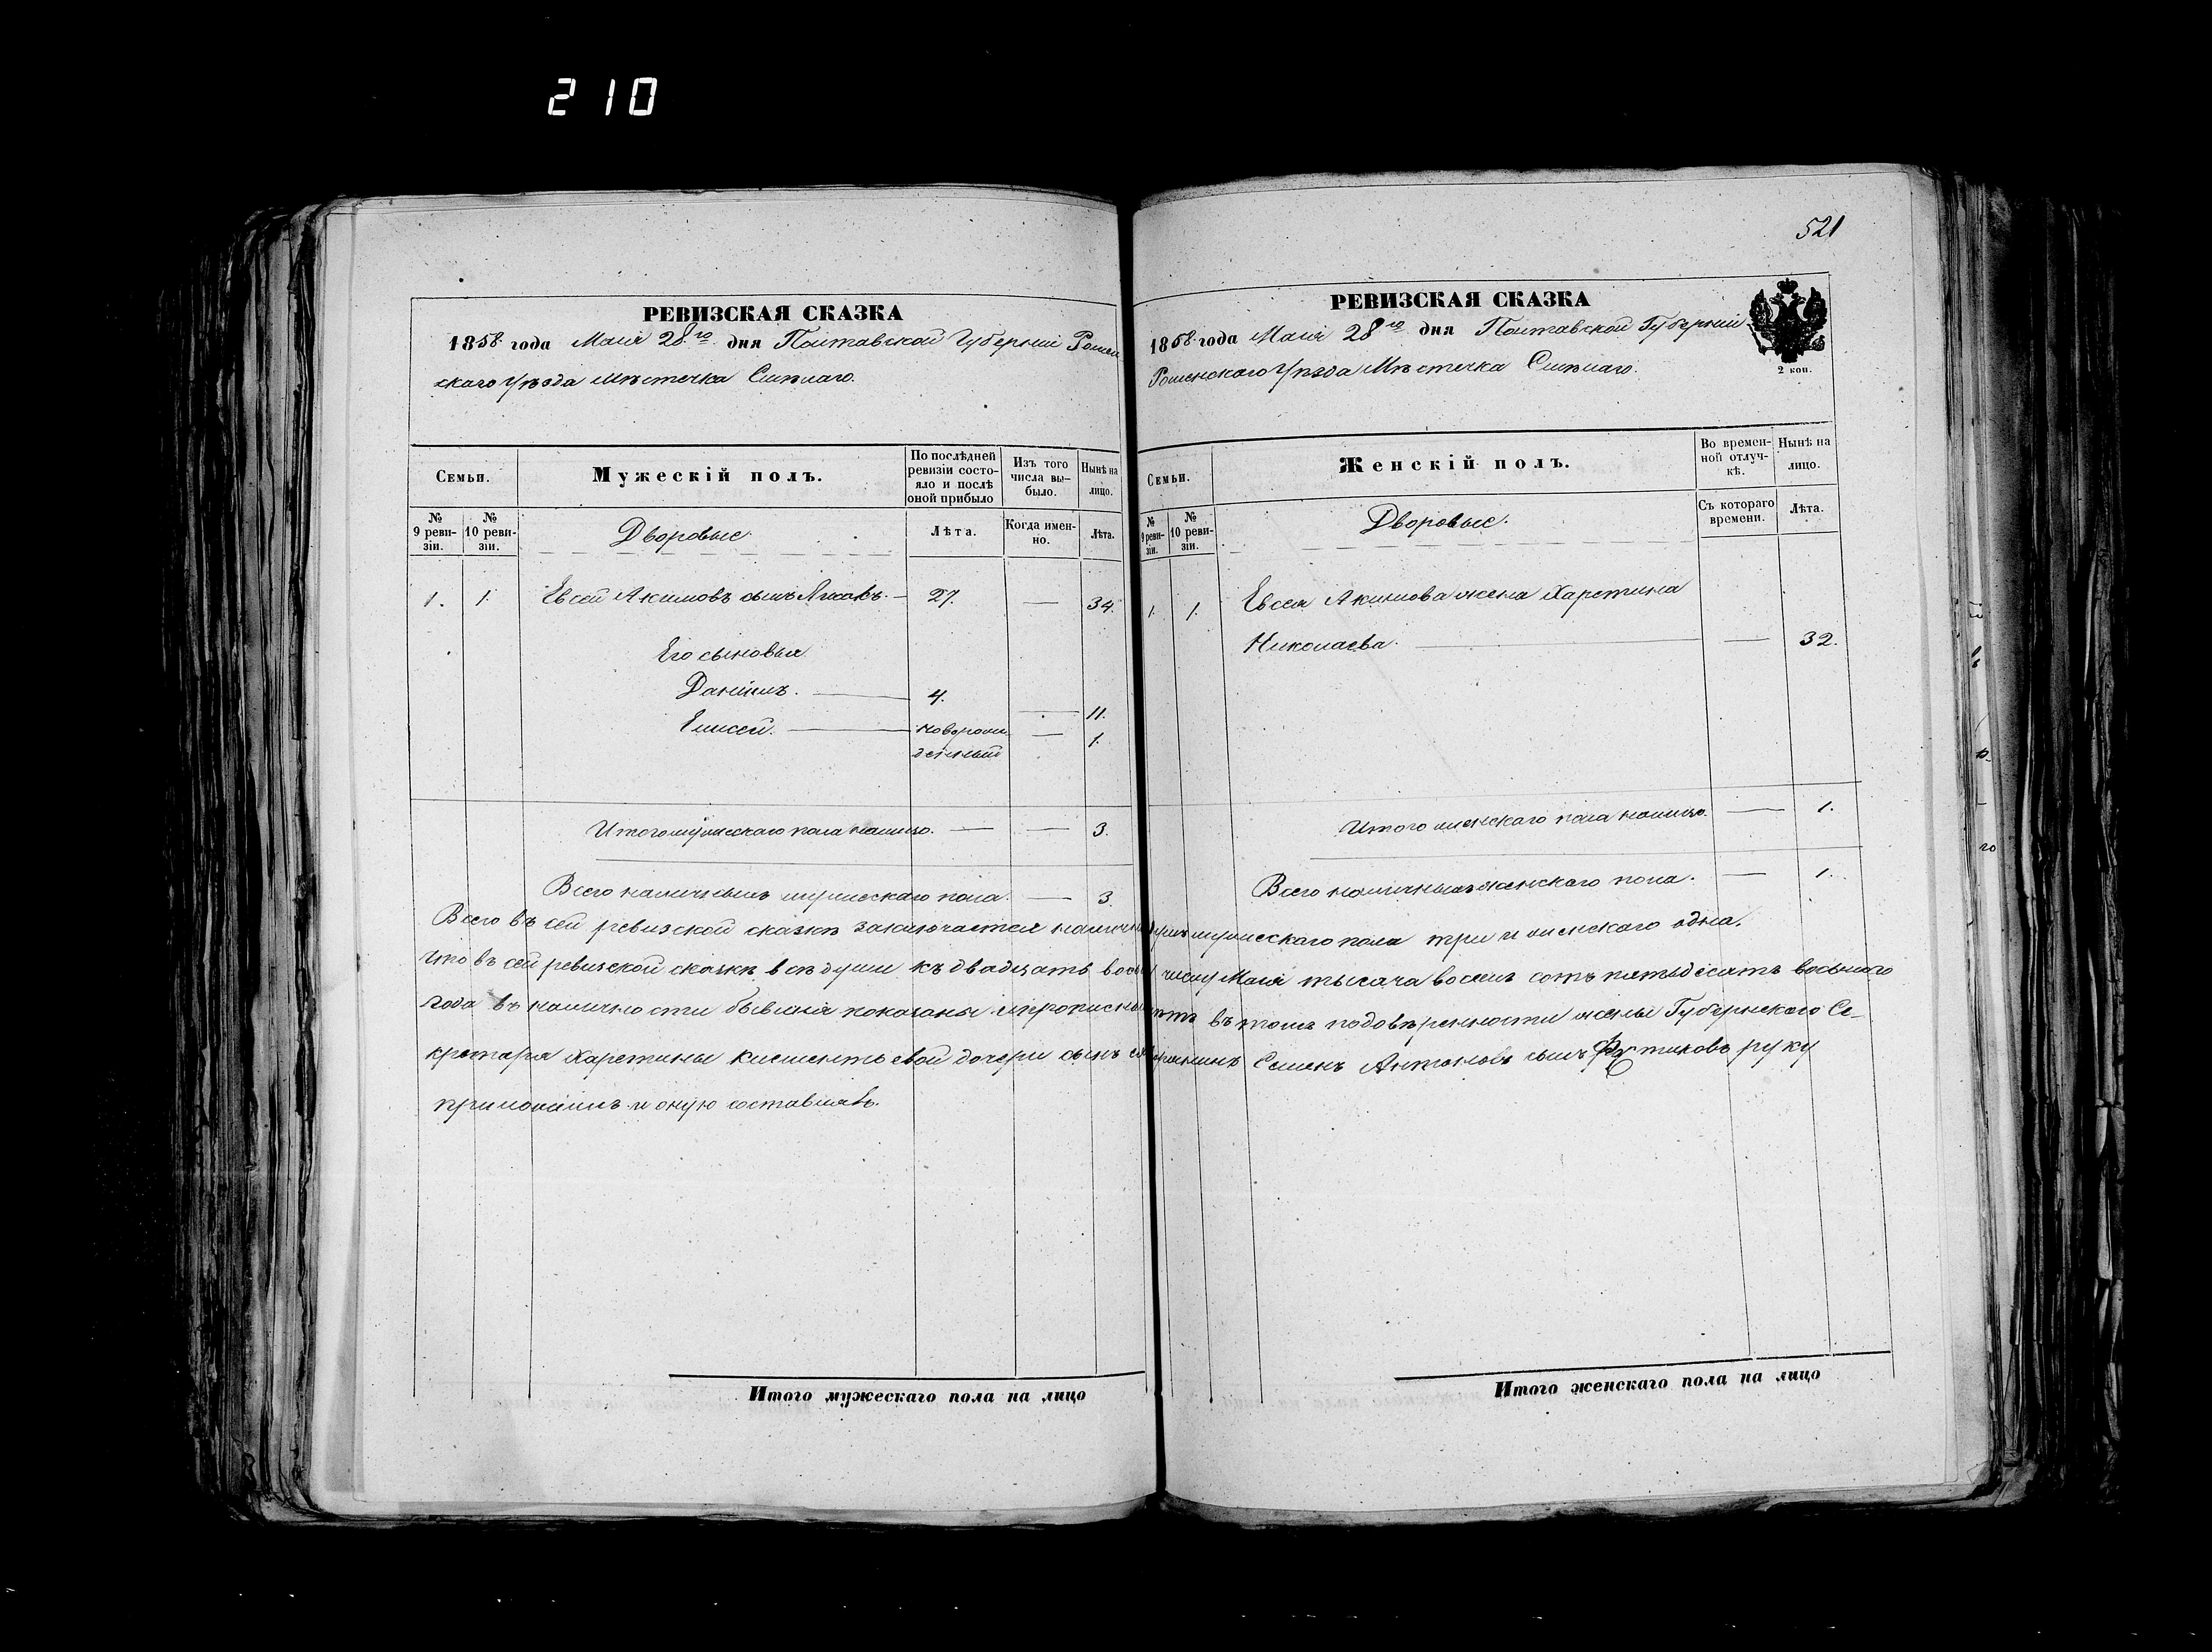 210
521
РЕВИЗСКАЯ СКАЗКА
1858. года Маія 28го дня Полтавской Губерніи Ромен
скаго Уѣзда Мѣстечка Смѣлаго.
Семьи.
Мужескій полъ.
По послѣдней ревизіи состо-
яло и послѣ оной прибыло
Изъ того числа вы-
было.
Нынѣ на лицо.
№ 9 реви-
зіи.
№ 10 реви-
зіи.
Дворовые.
Лѣта.
Когда имен-
но.
Лѣта.
1. 1. Евсей Акимовъ сынъ — 27. — 34.
Его сыновья
Даніилъ. — 4. — 11.
Елисей. — новорож — 1.
денный
Итого мужескаго пола налицо. — — 3.
Всего наличныхъ мужескаго пола. — 3.
РЕВИЗСКАЯ СКАЗКА
1858. года Маія 28го дня Полтавской Губерніи
Роменскаго Уѣзда Мѣстечка Смѣлаго.
2 коп.
Семьи.
Женскій полъ.
Во времен-
ной отлуч-
кѣ.
Нынѣ на лицо.
№ 9 реви-
зіи.
№ 10 реви-
зіи.
Дворовые.
Съ котораго времени.
Лѣта.
1. 1. Евсея Акимова жена Харетина
Николаева. — — 32.
Итого женскаго пола налицо. — 1.
Всего наличныхъ женскаго пола. — 1.
Всего въ сей ревизской сказкѣ заключается мужескаго пола три и женскаго одна.
Что въ сей ревизской сказкѣ всѣ души къ двадцать числу Маія тысяча восемь сотъ пятьдесятъ восьмого
года въ наличности бывшія показаны и въ томъ по довѣренности жены Губернского Се-
кретаря Харетины дочери сынъ Семенъ Антоновъ сынъ руку
приложилъ и оную составлялъ.
Итого мужескаго пола на лицо
Итого женскаго пола на лицо